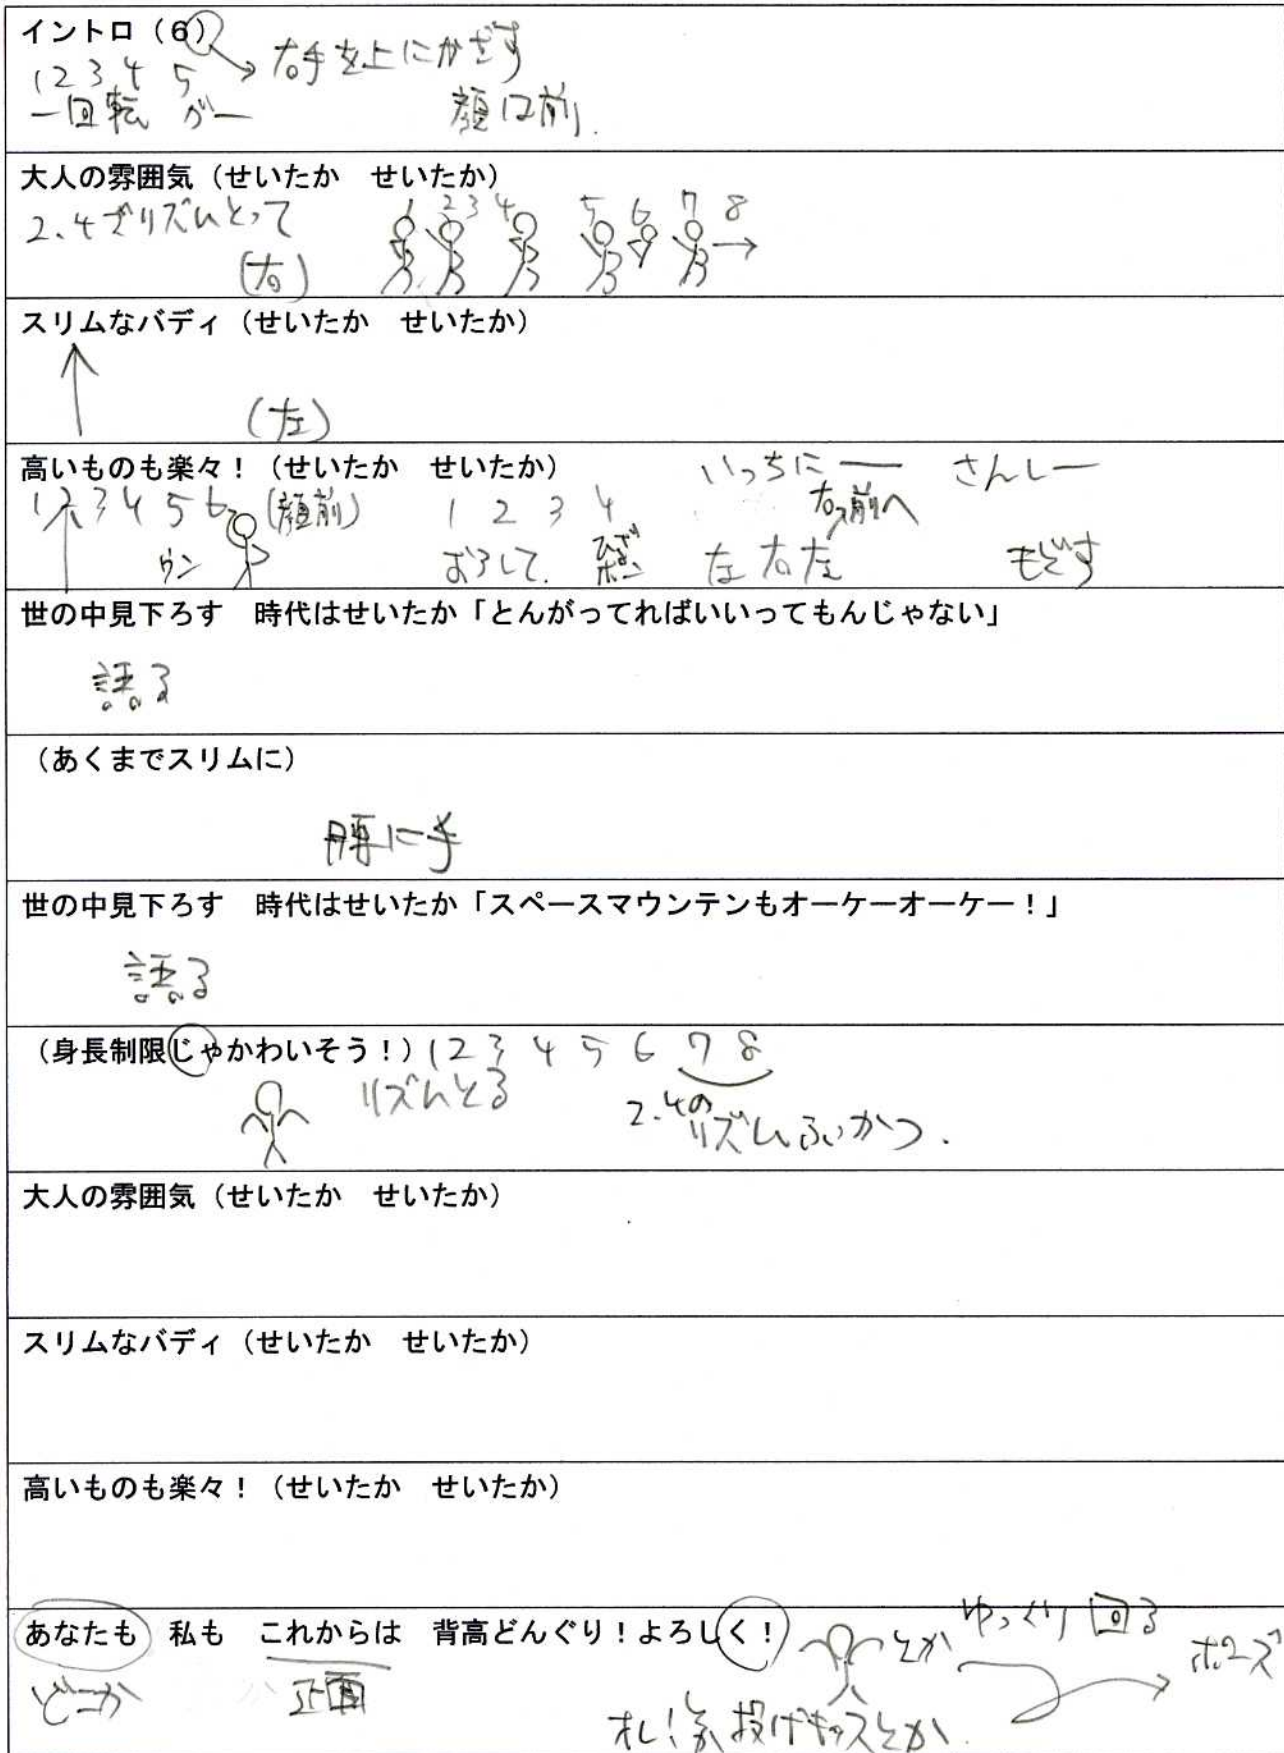 イントロ（6）
1 2 3 4 5 → 右手を上にかざす
一回転 がー 顔は前.
大人の雰囲気（せいたか　せいたか）
1 2 3 4 5 6 7 8
2、4でリズムとって
(右)
スリムなバディ（せいたか　せいたか）
(左)
高いものも楽々！（せいたか　せいたか） いっちにー さんしー
1 2 3 4 5 6 (顔前) 1 2 3 4 右前へ
ウン おろして. ひざポン 左右左 もどす
世の中見下ろす　時代はせいたか「とんがってればいいってもんじゃない」
語る
（あくまでスリムに）
腰に手
世の中見下ろす　時代はせいたか「スペースマウンテンもオーケーオーケー！」
語る
（身長制限じゃかわいそう！） 1 2 3 4 5 6 7 8
リズムとる 2.4の
リズムふっかつ.
大人の雰囲気（せいたか　せいたか）
スリムなバディ（せいたか　せいたか）
高いものも楽々！（せいたか　せいたか）
あなたも　私も　これからは　背高どんぐり！よろしく！ とか ゆっくり回る ポーズ
どこか 正面
投げキッスとか